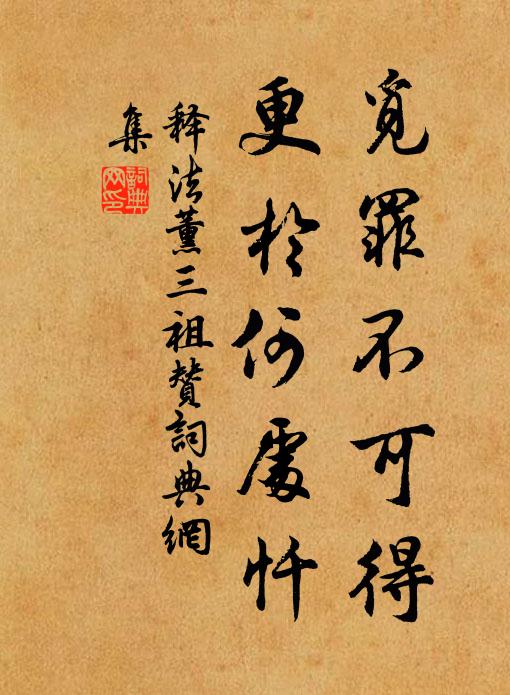 覓罪不可得
更於何處忏
释法薰三祖贊詞典網
集
詞典
网印